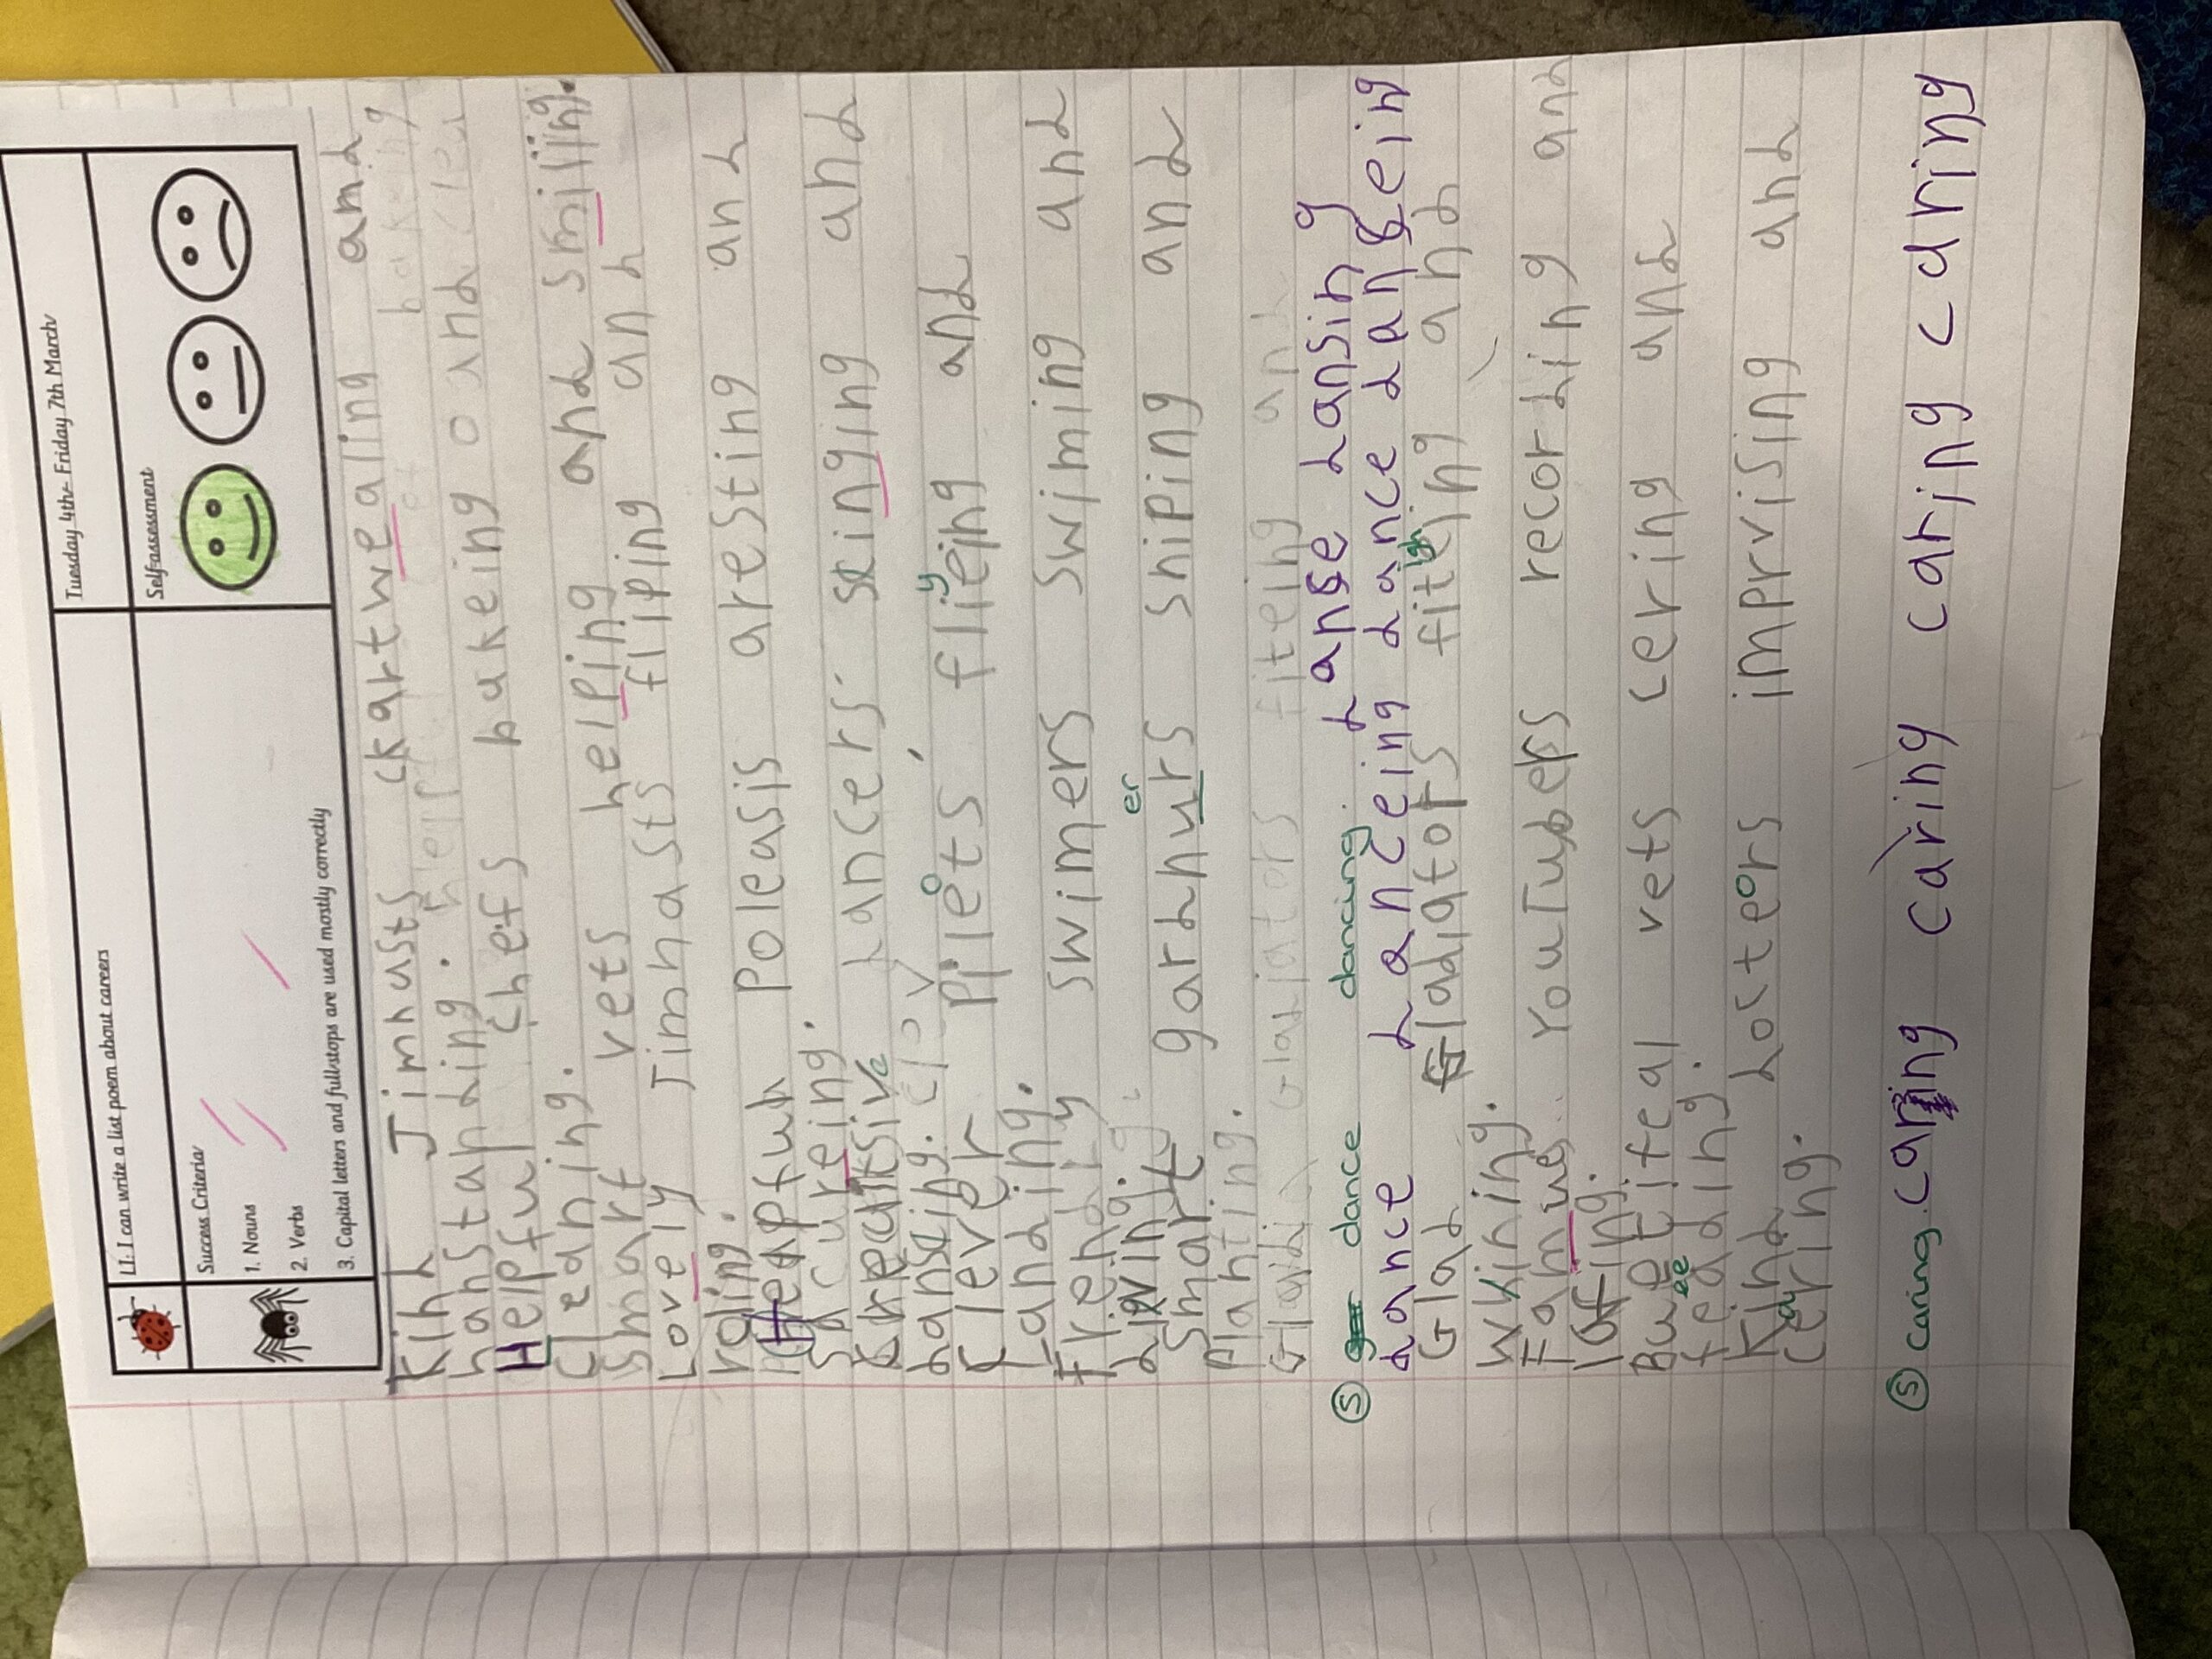 LI: I can write a list poem about careers
Tuesday 4th - Friday 7th March
Success Criteria
Self-assessment
1. Nouns
2. Verbs
3. Capital letters and full stops are used mostly correctly
Kind Jimnasts ckartwealing and
hanstanding.
Helpful chefs bakeing and
cleaning.
Smart vets helping and smiling.
Lovely Jimnasts fliping and
roling.
Poleasis aresting and
dancers singing and
dansing.
Clever Pilets flieing and
o y
landing.
Friendly swimers swiming and
diving.
er
Smart gardnurs sniping and
Planting.
Gladiators fiteing and
S dance dancing danse dansing
dance danceing dance dansgeing
Glad Gladiators fiteing and
igh
Wining.
Famus YouTubers recording and
Butifeal vets cering and
feading.
ee
Kind docters imprvising and
o
cering.
ar
S caring caring caring caring caring